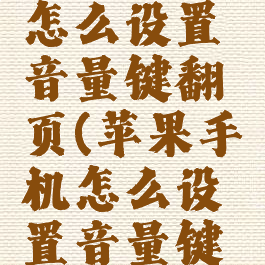 怎么设置
音量键翻
页(苹果手
机怎么设
置音量键